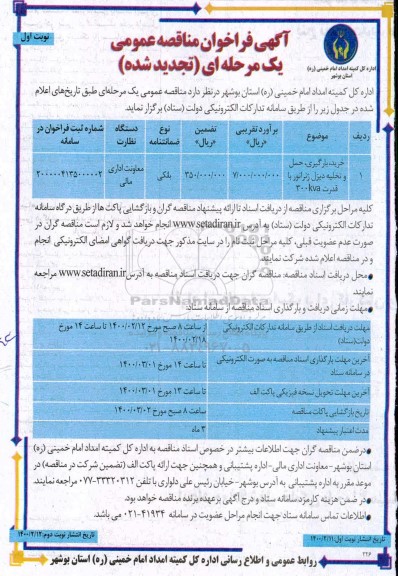 نوبت اول
آگهی فراخوان مناقصه عمومی
یک مرحله ای (تجدید شده)
اداره کل کمیته امداد امام خمینی (ره)
استان بوشهر
اداره کل کمیته امداد امام خمینی (ره) استان بوشهر درنظر دارد مناقصه عمومی یک مرحله‌ای طبق تاریخ‌های اعلام
شده در جدول زیر را از طریق سامانه تدارکات الکترونیکی دولت (ستاد) برگزار نماید.
ردیف موضوع برآورد تقریبی «ریال» تضمین «ریال» نوع ضمانتنامه دستگاه نظارت شماره ثبت فراخوان در سامانه
۱ خرید، بارگیری، حمل و تخلیه دیزل ژنراتور با قدرت ۳۰۰kva ۷/۰۰۰/۰۰۰/۰۰۰ ۳۵۰/۰۰۰/۰۰۰ بانکی معاونت اداری مالی ۲۰۰۰۰۰۴۱۳۵۰۰۰۰۰۲
کلیه مراحل برگزاری مناقصه از دریافت اسناد تا ارائه پیشنهاد مناقصه گران و بازگشایی پاکت ها از طریق درگاه سامانه
تدارکات الکترونیکی دولت (ستاد) به آدرس www.setadiran.ir انجام خواهد شد و لازم است مناقصه گران در
صورت عدم عضویت قبلی، کلیه مراحل ثبت نام را در سایت مذکور جهت دریافت گواهی امضای الکترونیکی انجام
و در مناقصه اعلام شده شرکت نمایند.
• محل دریافت اسناد مناقصه: مناقصه گران جهت دریافت اسناد مناقصه به آدرس www.setadiran.ir مراجعه
نمایند.
• مهلت زمانی دریافت و بارگذاری اسناد مناقصه از سامانه ستاد:
ParsNamadData
مهلت دریافت اسناد از طریق سامانه تدارکات الکترونیکی دولت (ستاد) از ساعت ۸ صبح مورخ ۱۴۰۰/۰۲/۱۲ تا ساعت ۱۴ مورخ ۱۴۰۰/۰۲/۱۸
آخرین مهلت بارگذاری اسناد مناقصه به صورت الکترونیکی در سامانه ستاد تا ساعت ۱۴ مورخ ۱۴۰۰/۰۳/۰۱
آخرین مهلت تحویل نسخه فیزیکی پاکت الف تا ساعت ۱۳ مورخ ۱۴۰۰/۰۳/۰۱
تاریخ بازگشایی پاکات مناقصه ساعت ۸ صبح مورخ ۱۴۰۰/۰۳/۰۲
مدت اعتبار پیشنهاد ۳ ماه
• در ضمن مناقصه گران جهت اطلاعات بیشتر در خصوص اسناد مناقصه به اداره کل کمیته امداد امام خمینی (ره)
استان بوشهر- معاونت اداری مالی- اداره پشتیبانی و همچنین جهت ارائه پاکت الف (تضمین شرکت در مناقصه) در
موعد مقرر به اداره پشتیبانی به آدرس بوشهر- خیابان رئیس علی دلواری با تلفن ۳۳۳۲۰۳۱۲-۰۷۷ مراجعه نمایند.
• در ضمن هزینه کارمزد سامانه ستاد و درج آگهی برعهده برنده مناقصه خواهد بود.
• اطلاعات تماس سامانه ستاد جهت انجام مراحل عضویت در سامانه ۴۱۹۳۴-۰۲۱ می باشد.
تاریخ انتشار نوبت اول: ۱۴۰۰/۲/۱۱
تاریخ انتشار نوبت دوم: ۱۴۰۰/۲/۱۲
۲۲۶
روابط عمومی و اطلاع رسانی اداره کل کمیته امداد امام خمینی (ره) استان بوشهر